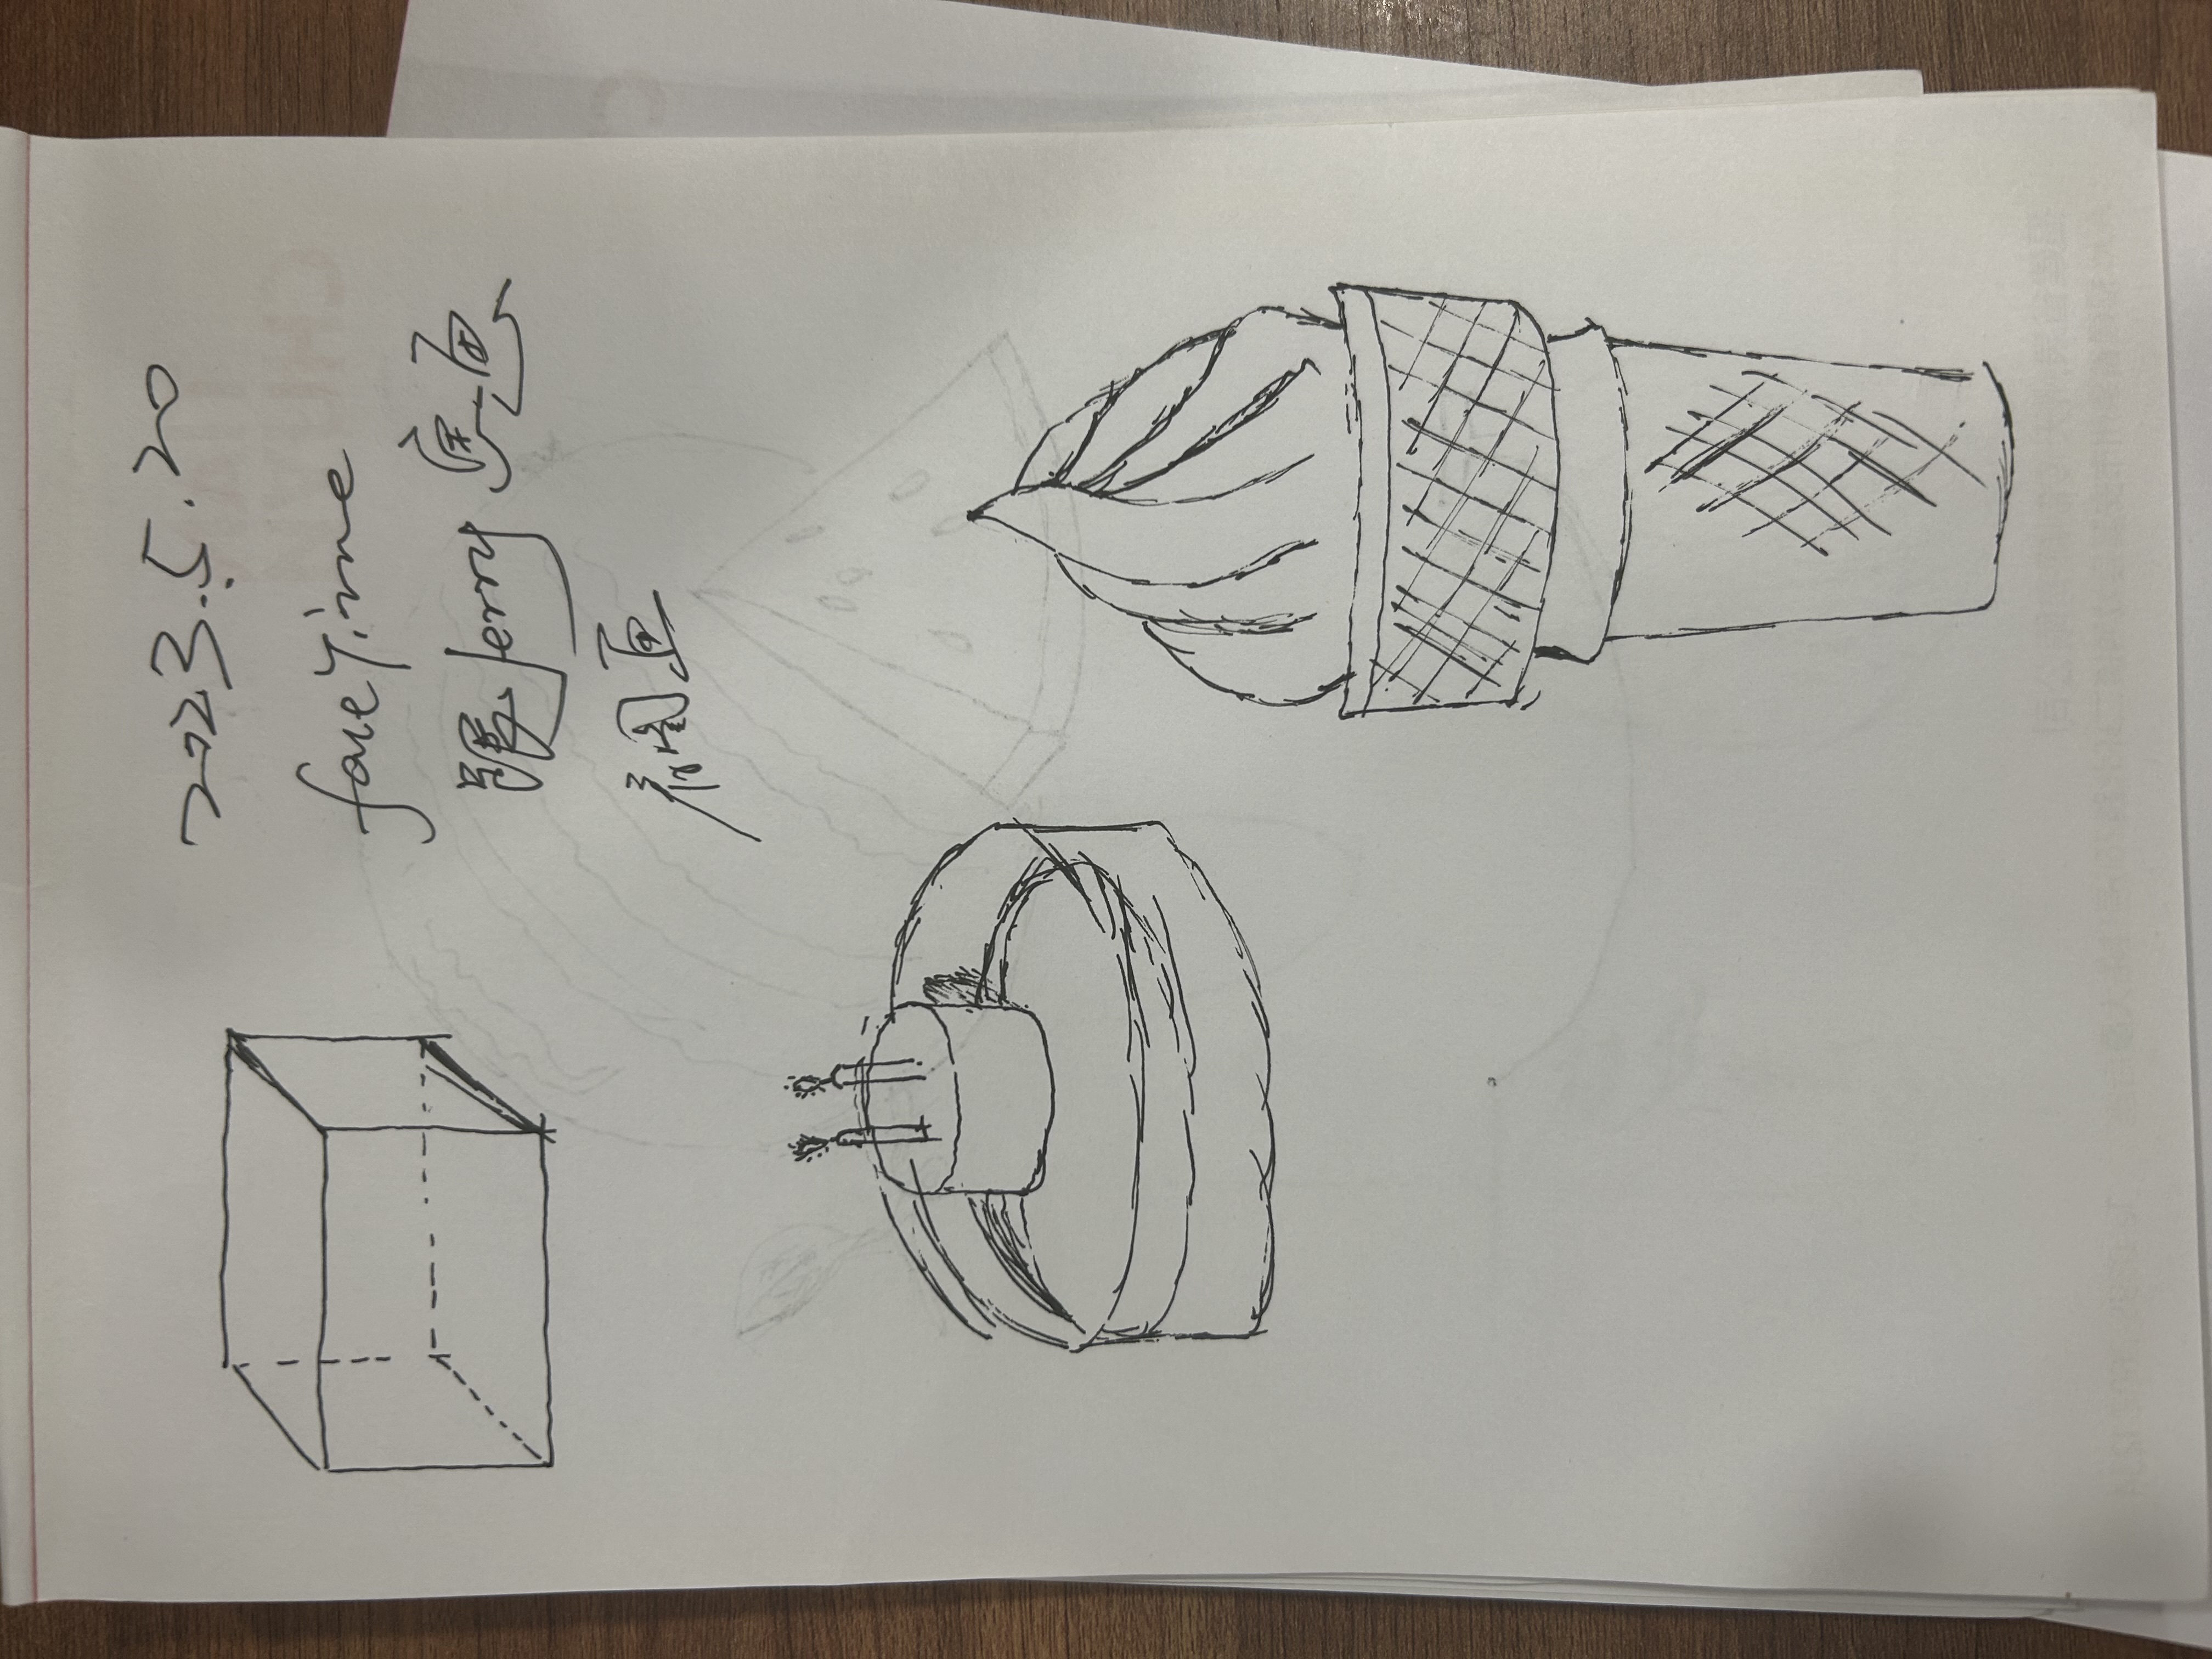 2023.5.20
faceTime
跟Jerry 画
看图画